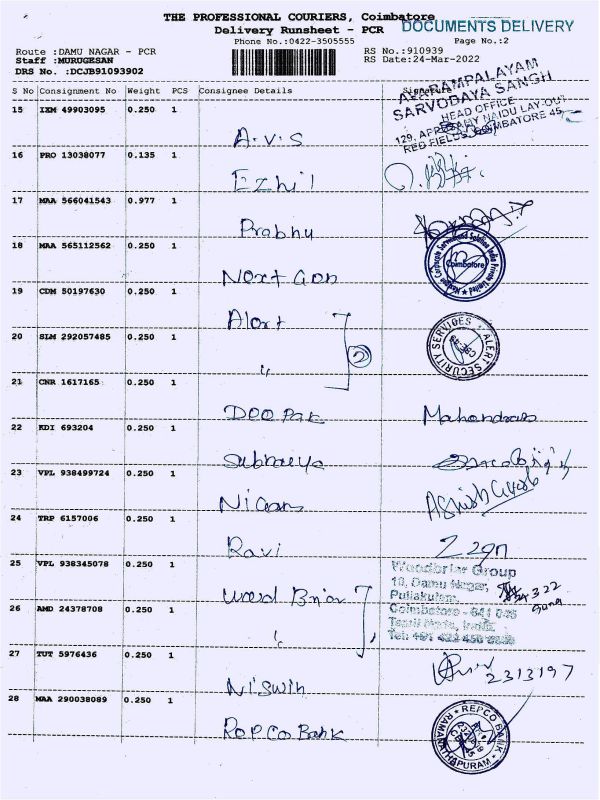 THE PROFESSIONAL COURIERS, Coimbatore
DOCUMENTS DELIVERY
Delivery Runsheet - PCR
Phone No.:0422-3505555
Page No.:2
Route :DAMU NAGAR - PCR
RS No.:910939
Staff :MURUGESAN
RS Date:24-Mar-2022
DRS No. :DCJB91093902
S No Consignment No Weight PCS Consignee Details Signature
SARVODAYA SANGH
HEAD OFFICE
NAIDU LAY-OUT
RED FIELDS, COIMBATORE 45
15 IXM 49903095 0.250 1
A.V.S
16 PRO 13038077 0.135 1
Ezhil
17 MAA 566041543 0.977 1
Prabhu
18 MAA 565112562 0.250 1
Next Gen
Coimbatore
19 CDM 50197630 0.250 1
Alert
20 SLM 292057485 0.250 1
"
2
ALERT SECURITY SERVICES
CBE-45
21 CNR 1617165 0.250 1
Deepak
Mahendran
22 KDI 693204 0.250 1
Subraeya
23 VPL 938499724 0.250 1
24 TRP 6157006 0.250 1
Ravi
25 VPL 938345078 0.250 1
Wood Briar
Woodbriar Group
10, Damu Nagar,
Puliakulam,
Coimbatore - 641 045
Tamil Nadu, India.
26 AMD 24378708 0.250 1
27 TUT 5976436 0.250 1
Niswin
28 MAA 290038089 0.250 1
Repco Bank
REPCO BANK
RAMANATHAPURAM